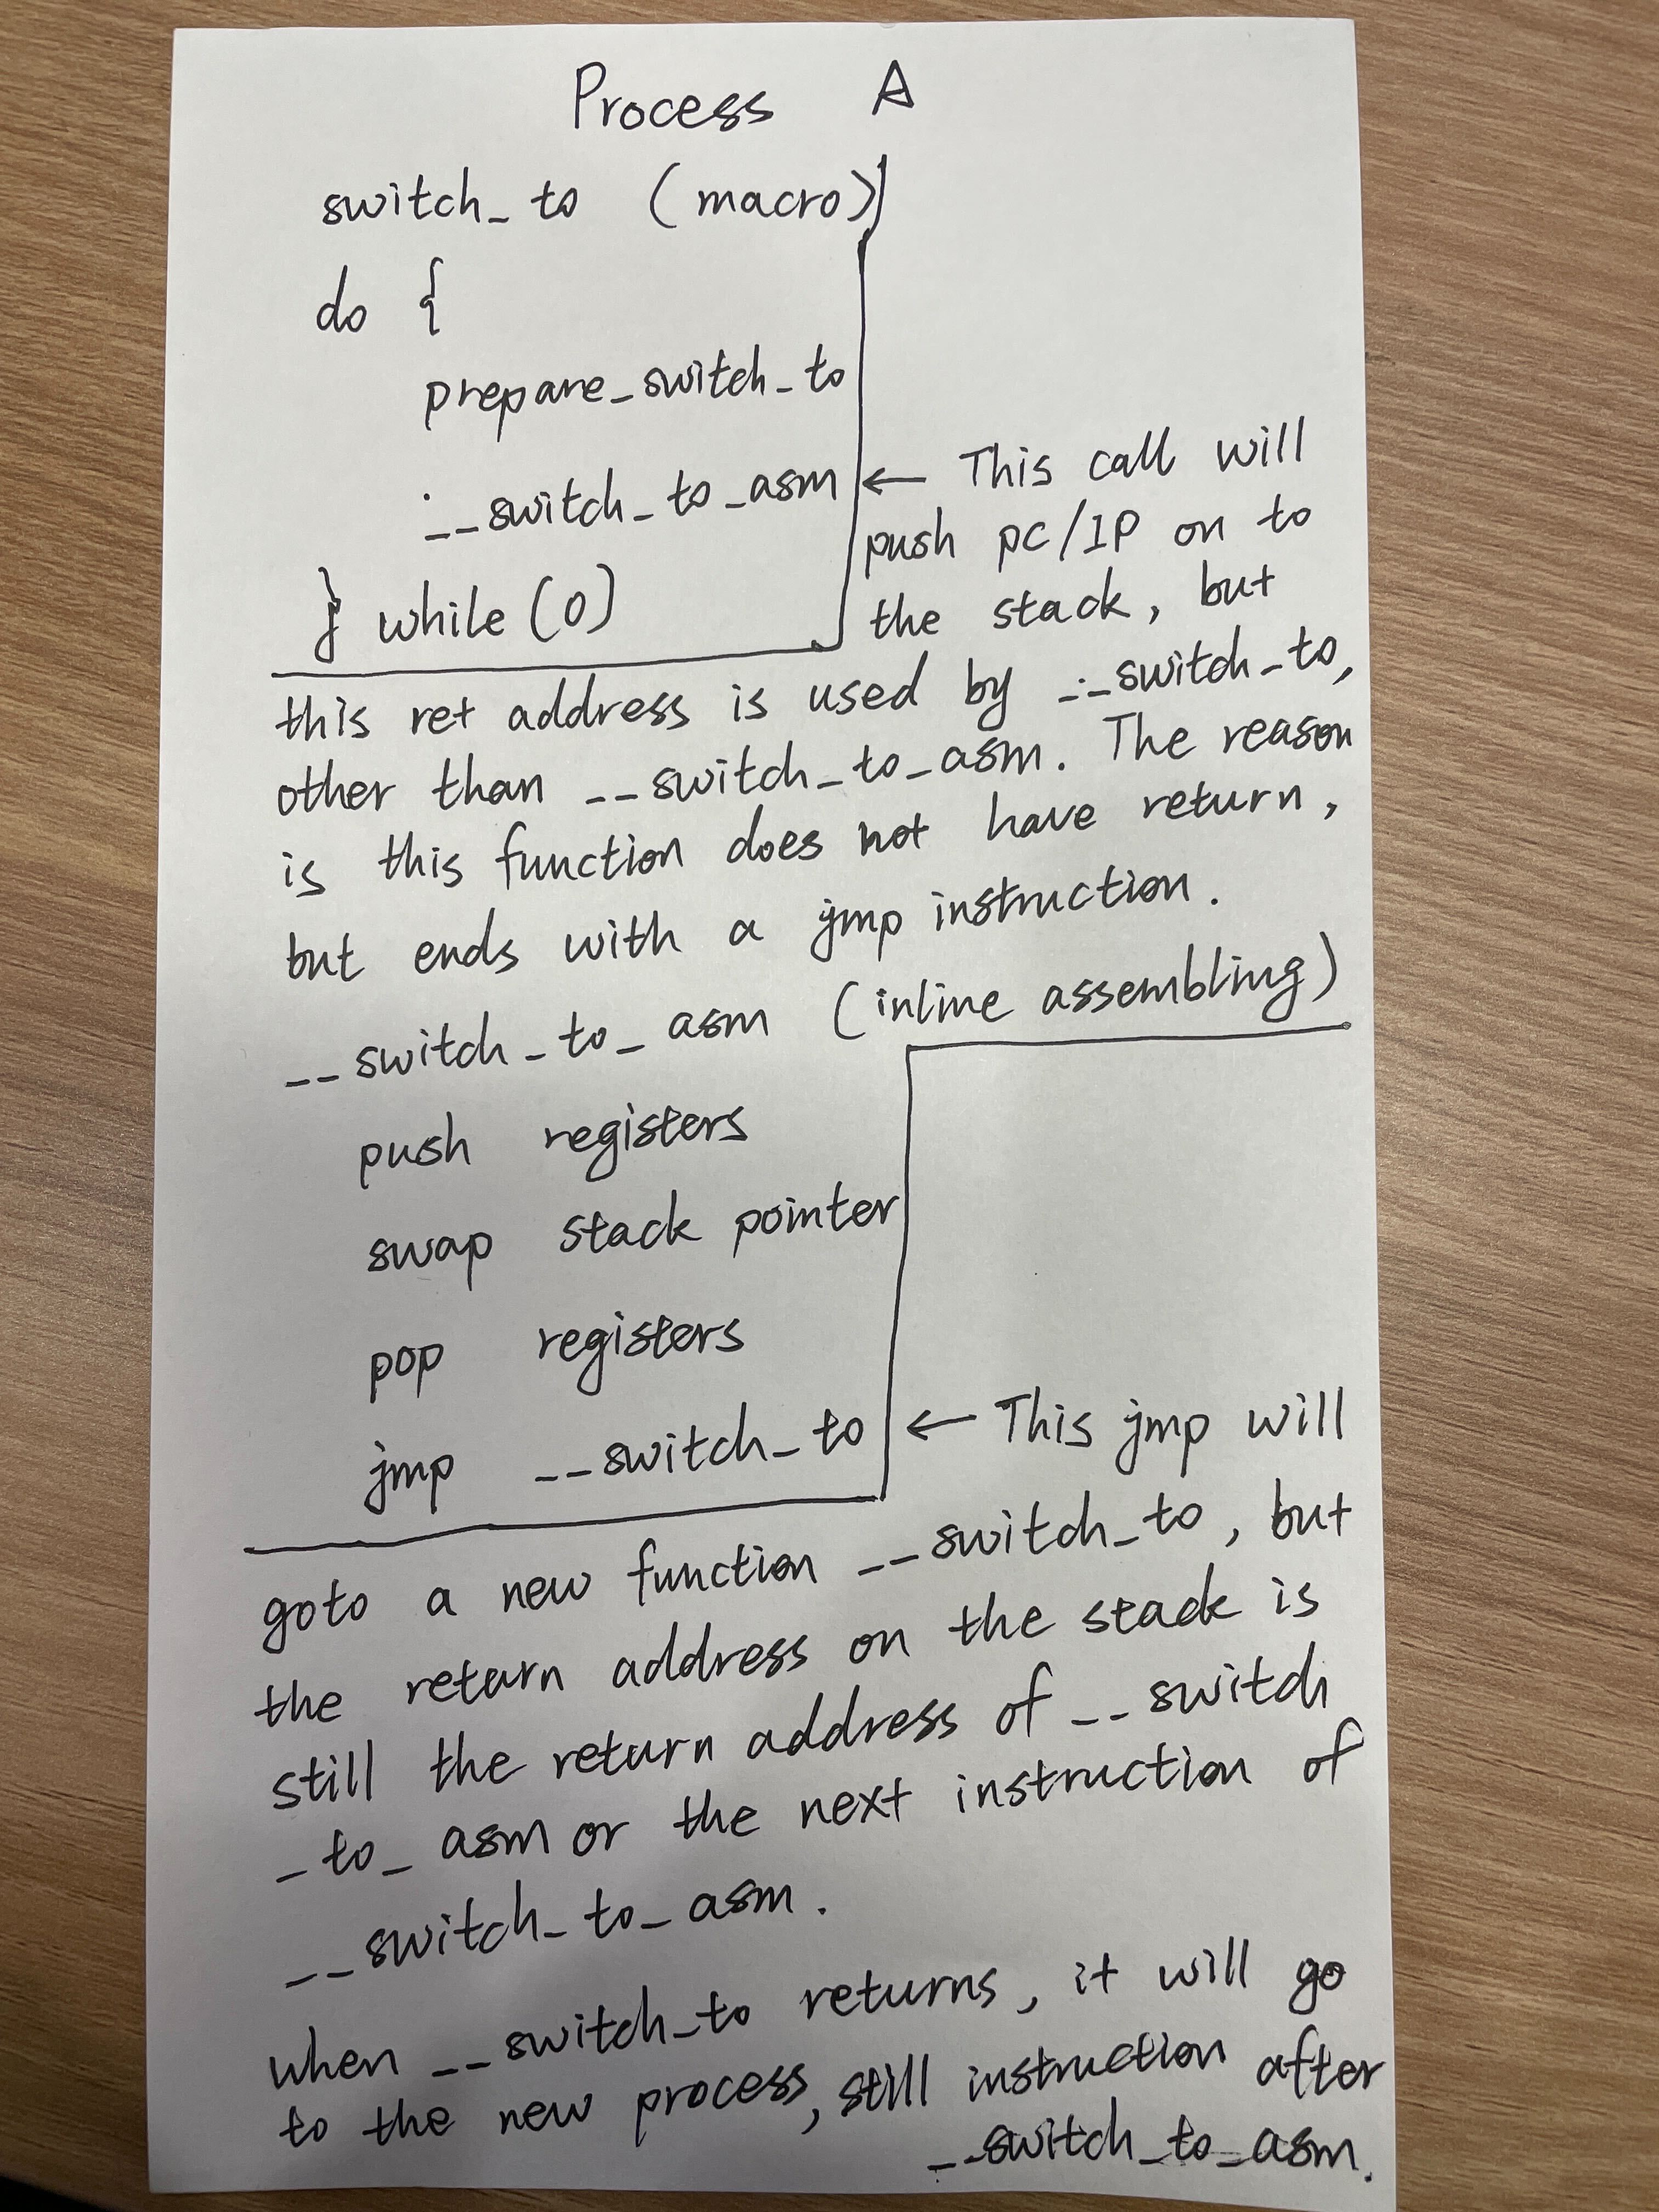 Process A
switch_to (macro)
do {
prepare_switch_to
__switch_to_asm ← This call will
push pc/IP on to
} while (0)
the stack, but
this ret address is used by __switch_to,
other than __switch_to_asm. The reason
is this function does not have return,
but ends with a jmp instruction.
__switch_to_asm (inline assembling)
push registers
swap stack pointer
pop registers
jmp __switch_to ← This jmp will
goto a new function __switch_to, but
the return address on the stack is
still the return address of __switch
_to_asm or the next instruction of
__switch_to_asm.
when __switch_to returns, it will go
to the new process, still instruction after
__switch_to_asm.